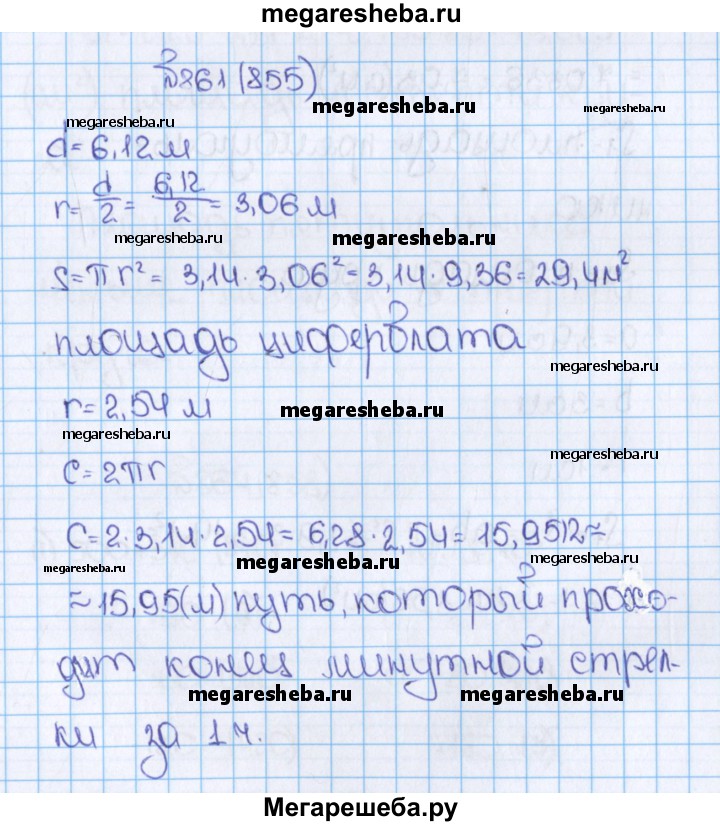 megaresheba.ru
№861 (855)
megaresheba.ru
megaresheba.ru
megaresheba.ru
d = 6,12 м
r = d/2 = 6,12/2 = 3,06 м
megaresheba.ru
megaresheba.ru
S = πr² = 3,14 · 3,06² = 3,14 · 9,36 = 29,4 м²
площадь циферблата
megaresheba.ru
r = 2,54 м
megaresheba.ru
megaresheba.ru
megaresheba.ru
C = 2πr
C = 2 · 3,14 · 2,54 = 6,28 · 2,54 = 15,9512 ≈
megaresheba.ru
megaresheba.ru
megaresheba.ru
≈ 15,95 (м) путь, который прохо-
дит конец минутной стрел-
megaresheba.ru
megaresheba.ru
ки за 1 ч.
Мегарешеба.ру